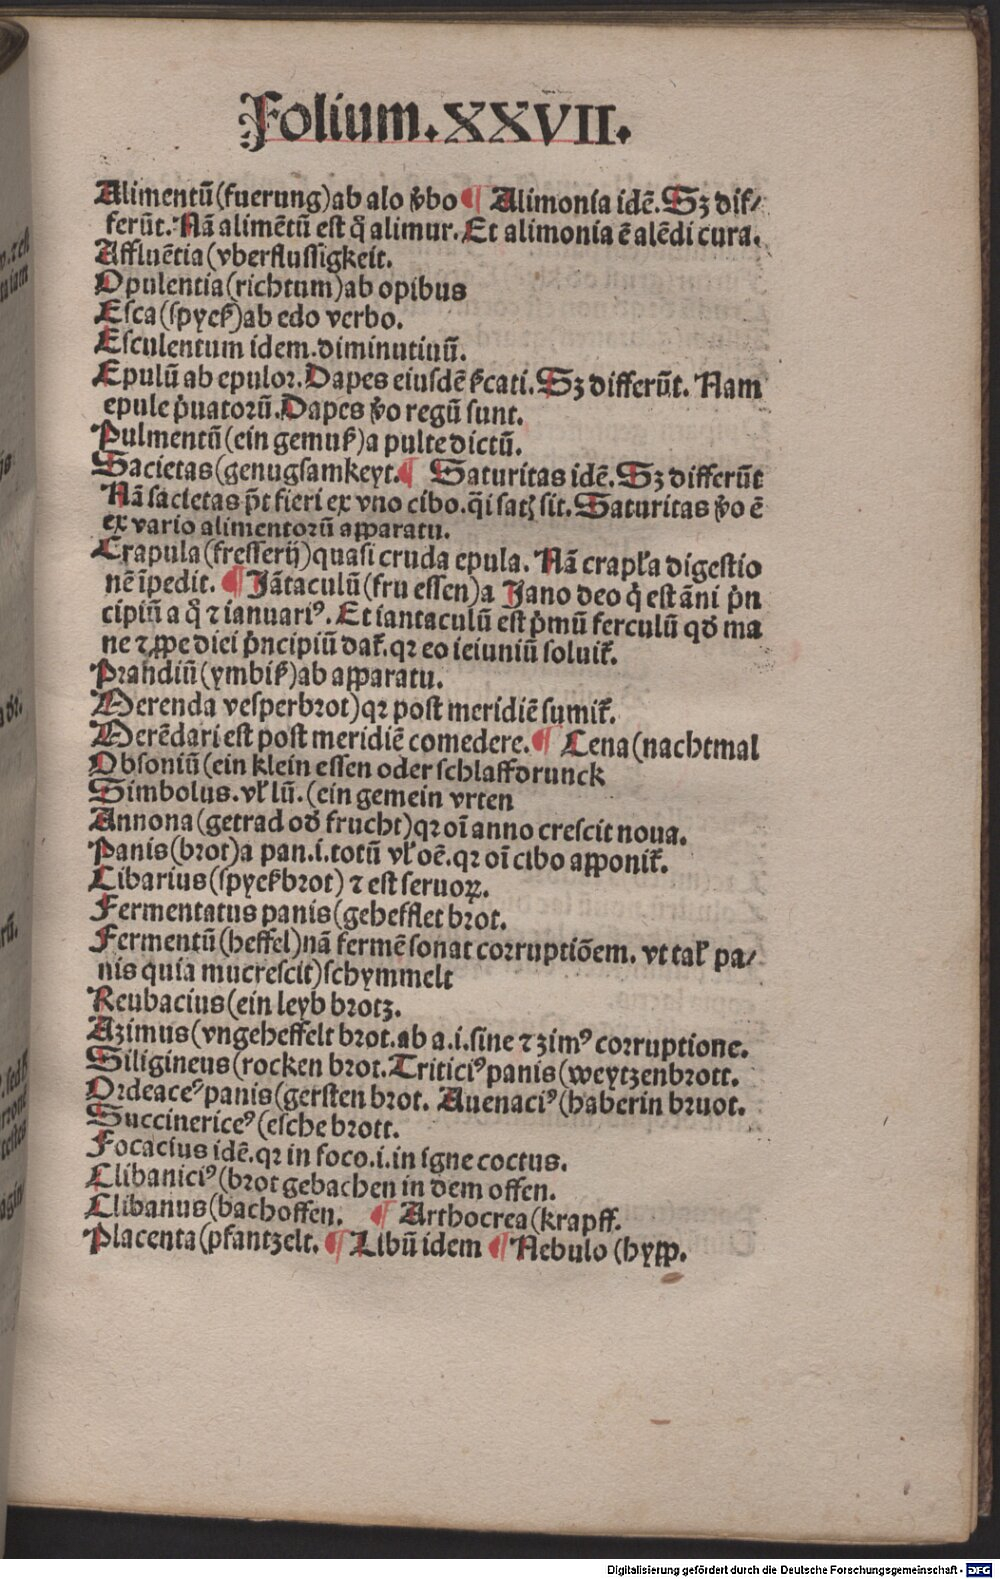 Folium.XXVII.
Alimentū(fuerung)ab alo ꝟbo ¶ Alimonia idē.Sꝫ dif/
ferūt.Nā alimētū est ꝙ alimur.Et alimonia ē alēdi cura.
Affluētia(vberflussigkeit.
Opulentia(richtum)ab opibus
Esca(spyeß)ab edo verbo.
Esculentum idem.diminutiuū.
Epulū ab epulor.Dapes eiusdē ßcati.Sꝫ differūt. Nam
epule p̄uatorū.Dapes ꝟo regū sunt.
Pulmentū(ein gemuß)a pulte dictū.
Sacietas(genugsamkeyt.¶ Saturitas idē.Sꝫ differūt
Nā sacietas p̄t fieri ex vno cibo.q̄i satꝭ sit.Saturitas ꝟo ē
ex vario alimentorū apparatu.
Crapula(fresserij)quasi cruda epula. Nā crapła digestio
nē īpedit. ¶ Jātaculū(fru essen)a Jano deo q̇ est āni p̄n
cipiū a ꝙ ⁊ ianuariꝰ. Et iantaculū est p̄mū ferculū qđ ma
ne ⁊ ꝓpe diei p̄ncipiū dat̄.qꝛ eo ieiuniū soluit̄.
Prandiū(ymbiß)ab apparatu.
Merenda vesperbrot)qꝛ post meridiē sumit̄.
Merēdari est post meridiē comedere.¶ Cena(nachtmal
Obsoniū(ein klein essen oder schlaffdrunck
Simbolus.vł lū.(ein gemein vrten
Annona(getrad ođ frucht)qꝛ oī anno crescit noua.
Panis(brot)a pan.i.totū vł oē.qꝛ oī cibo apponit̄.
Cibarius(spyeßbrot) ⁊ est seruoꝝ.
Fermentatus panis(gehefflet brot.
Fermentū(heffel)nā fermē sonat corruptiōem. vt tał pa/
nis quia mucrescit)schymmelt
Reubacius(ein leyb brotz.
Azimus(vngeheffelt brot.ab a.i.sine ⁊ zimꝰ corruptione.
Siligineus(rocken brot.Triticiꝰ panis(weytzenbrott.
Ordeaceꝰ panis(gersten brot. Auenaciꝰ(haberin bruot.
Succinericeꝰ(esche brott.
Focacius idē.qꝛ in foco.i.in igne coctus.
Clibaniciꝰ(brot gebachen in dem offen.
Clibanus(bachoffen. ¶ Arthocrea(krapff.
Placenta(pfantzelt. ¶ Libū idem ¶ Nebulo (hypp.
Digitalisierung gefördert durch die Deutsche Forschungsgemeinschaft - DFG